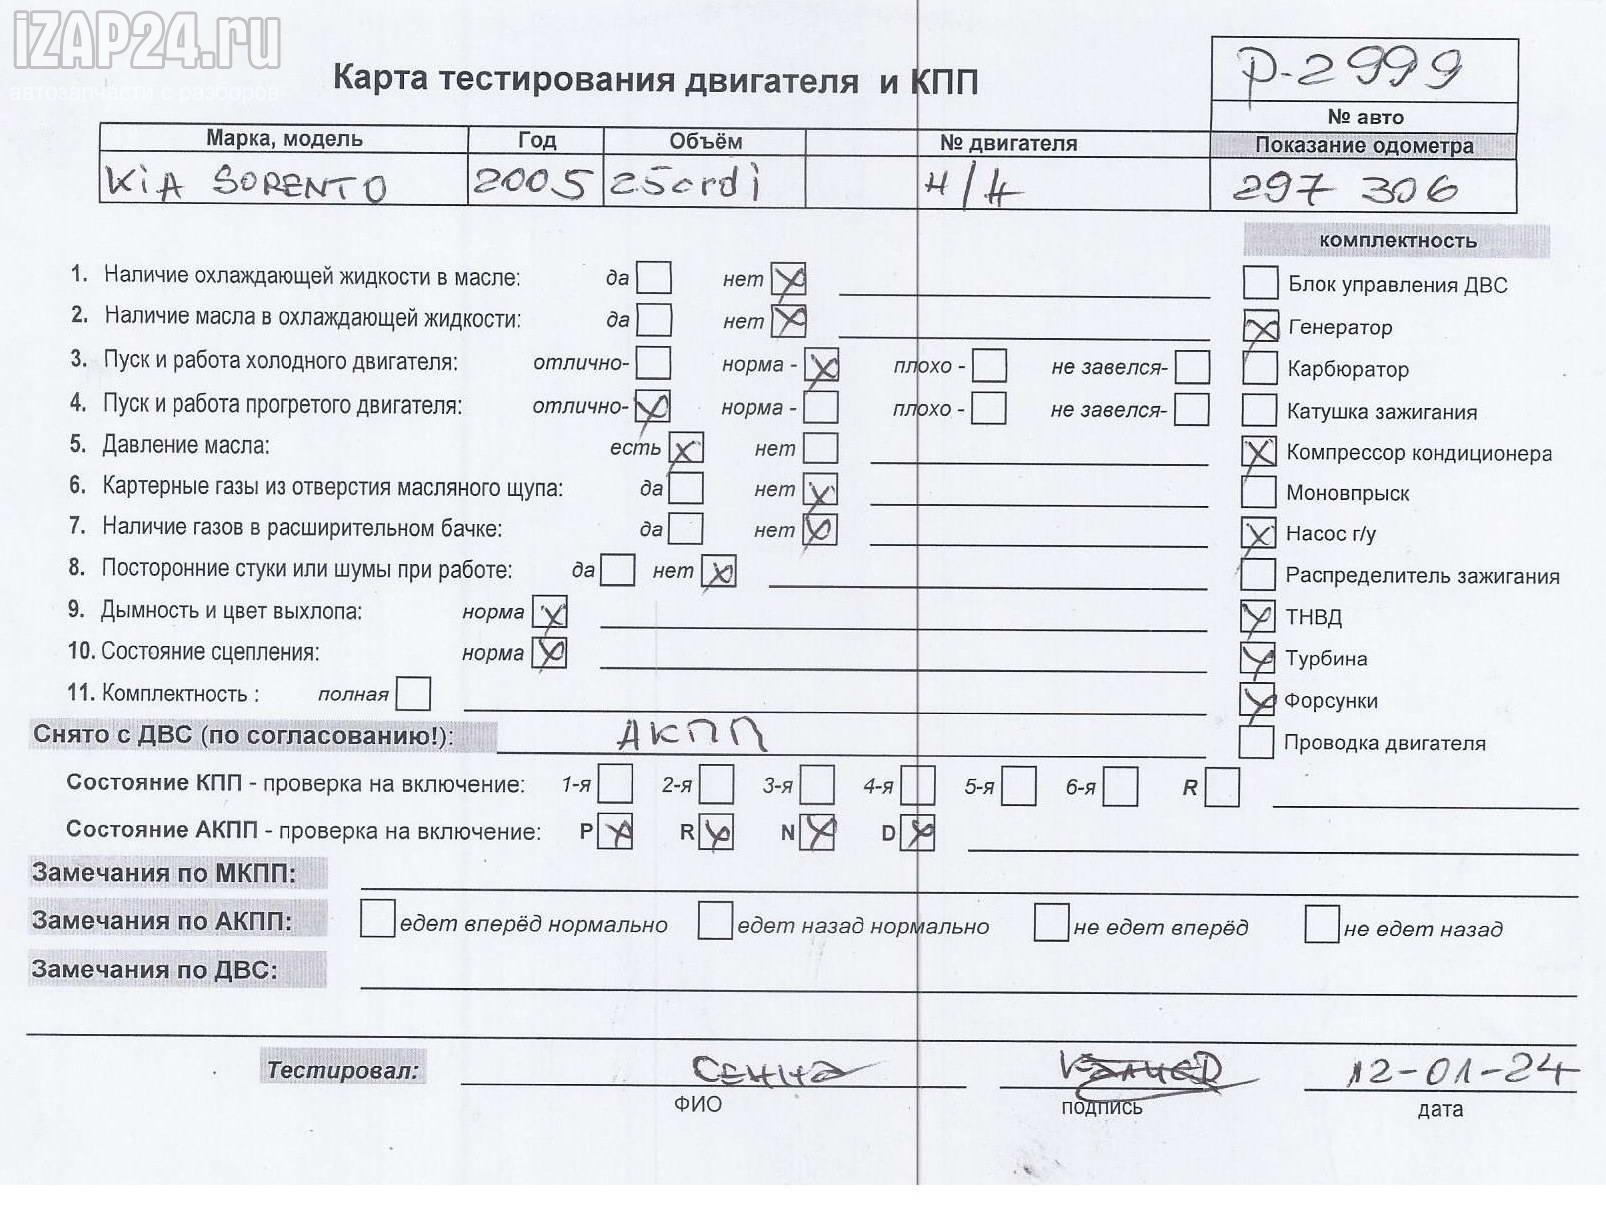 iZAP24.ru
автозапчасти с разборов
Карта тестирования двигателя и КПП
р-2999
№ авто
Марка, модель Год Объём № двигателя Показание одометра
KiA SORENTO 2005 25crdi Н/Н 297 306
комплектность
1. Наличие охлаждающей жидкости в масле: да нет
Блок управления ДВС
2. Наличие масла в охлаждающей жидкости: да нет
Генератор
3. Пуск и работа холодного двигателя: отлично- норма - плохо - не завелся-
Карбюратор
4. Пуск и работа прогретого двигателя: отлично- норма - плохо - не завелся-
Катушка зажигания
5. Давление масла: есть нет
Компрессор кондиционера
6. Картерные газы из отверстия масляного щупа: да нет
Моновпрыск
7. Наличие газов в расширительном бачке: да нет
Насос г/у
8. Посторонние стуки или шумы при работе: да нет
Распределитель зажигания
9. Дымность и цвет выхлопа: норма
ТНВД
10. Состояние сцепления: норма
Турбина
11. Комплектность : полная
Форсунки
Снято с ДВС (по согласованию!): АКПП
Проводка двигателя
Состояние КПП - проверка на включение: 1-я 2-я 3-я 4-я 5-я 6-я R
Состояние АКПП - проверка на включение: P R N D
Замечания по МКПП:
Замечания по АКПП: едет вперёд нормально едет назад нормально не едет вперёд не едет назад
Замечания по ДВС:
Тестировал: 12-01-24
ФИО подпись дата